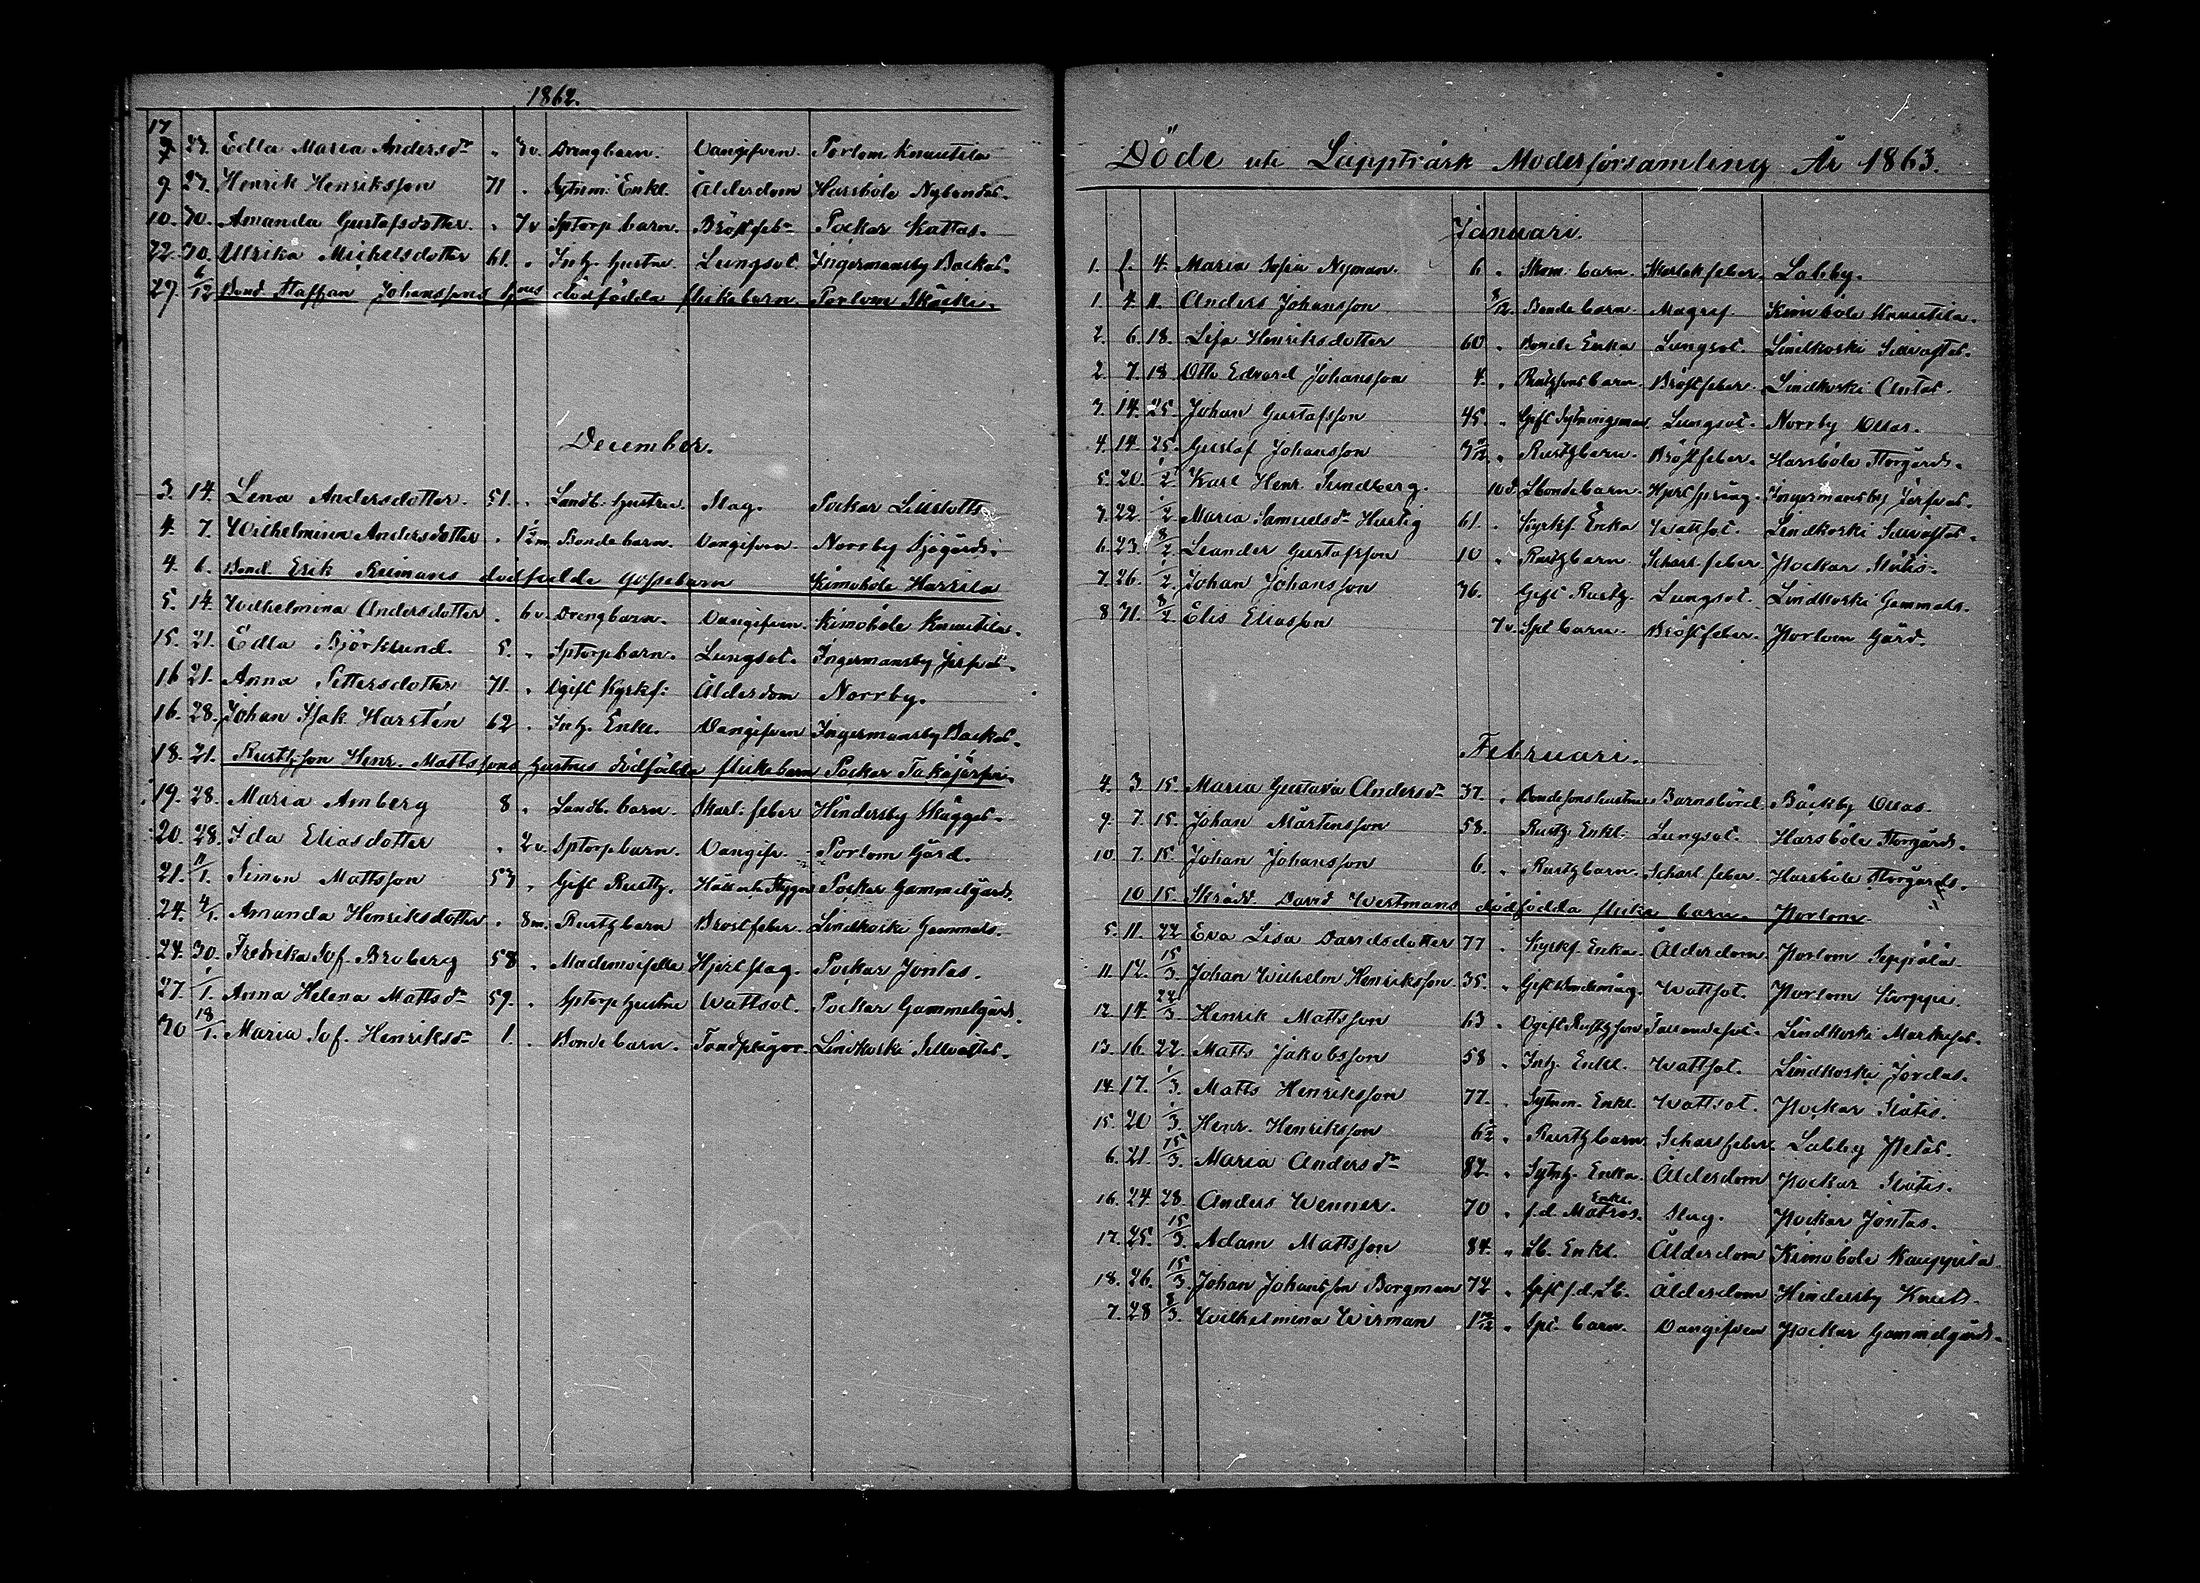 1862.
17
7 23. Edla Maria Andersdr " 3v. Drengbarn. Oangifven Porlom Knuutila
9 23. Henrik Henriksson 71 " Sytnm: Enkl. Ålderdom Harsböle Nybondas.
10. 30. Amanda Gustafsdotter. " 7v Sptorp barn. Bröstfebr Pockar Kattas.
22. 30. Ulrika Mickelsdotter 61. " Inh. hustru. Lungsot. Ingermansby Backas.
29. 6/12 Bond Staffan Johanssons hus dödfödda flickebarn Porlom Skäcki.
December.
3. 14. Lena Andersdotter. 51. " Landb. hustru Slag. Pockar
4. 7. Wilhelmina Andersdotter " 1½m Bondebarn. Oangifven Norrby Sjögårds.
4. 6. Bond. Erik Reimans dödfödde gossebarn Kimoböle Harrila
5. 14. Wilhelmina Andersdotter " 6v Drengbarn. Oangifven. Kimoböle Knuutila.
15. 21. Edla Björklund. 5. " Sptorpbarn. Lungsot. Ingermansby Jerfvas.
16 21. Anna Pettersdotter 71. " Ogift Kyrkf: Ålderdom Norrby.
16. 28. Johan Isak Harstén 62 " Inh. Enkl. Oangifven Ingermansby Backas.
18. 21. Rusthsson Henr. Mattssons hustrus dödfödda flickebarn Pockar Takajärfvi.
19. 28. Maria Amberg 8 " Landb. barn. Skarl: feber Hindersby Skägges.
20. 28. Ida Eliasdotter " 2v Sptorpbarn. Oangifv. Porlom Gård.
21. 11/1. Simon Mattsson 53 " Gift Rusth. Håll o. Stygn Pockar Gammelgårds.
24. 4/1. Amanda Henriksdotter " 8m. Rusthbarn Bröstfeber. Lindkoski Gammals.
24. 30. Fredrika Sof. Broberg 58 " Mademoiselle Hjertslag. Pockar Jontas.
27. 1/1. Anna Helena Mattsdr 59. " Sptorp hustru Wattsot. Pockar Gammelgårds.
30 18/1. Maria Sof. Henriksdr 1. " Bondebarn. Tandplågor. Lindkoski Sillvastas.
Döde uti Lappträsk Moderförsamling År 1863.
Januari.
1. 1. 4. Maria Sofia Nyman. 6 " Skom. barn. Skarlakfeber Labby.
1. 4 11. Anders Johansson 8/12. Bondebarn. Magref Kimoböle Knuutila.
2. 6. 18. Lisa Henriksdotter 60 " Bonde Enka Lungsot. Lindkoski
2. 7. 18 Otto Edvard Johansson 4. " Rusthsonsbarn. Bröstfeber. Lindkoski Antas.
3. 14. 25. Johan Gustafsson 45. " Gift Sytningsman Lungsot. Norrby Ollas.
4. 14 25. Gustaf Johansson Rusthbarn. Bröstfeber. Harsböle Storgårds.
5. 20 1/2 Karl Henr. Sundberg. 10 d. Lbondebarn. Hjertspräng. Ingermansby Jerfvas.
3. 22. 1/2 Maria Samuelsdr Hurtig 61. " Kyrkf. Enka Wattsot. Lindkoski
6. 23. 8/2 Leander Gustafsson 10 " Rusthbarn Scharl. feber Pockar Slätis.
7. 26. 1/2. Johan Johansson 36. " Gift Rusth. Lungsot. Lindkoski Gammals.
8 31. 8/2 Elis Eliasson 7v. Spt barn. Bröstfeber. Porlom Gård.
Februari.
4. 3 15. Maria Gustava Andersdr 37. " Bondesonshustru Barnsbörd Bäckby Ollas.
9. 7. 15. Johan Mårtensson 58. " Rusth. Enkl. Lungsot. Harsböle Storgårds.
10 7. 15. Johan Johansson 6. " Rusthbarn. Scharl. feber. Harsböle Storgårds.
10 15. Skrädd. David Westmans dödfödda flicke barn. Porlom
5. 11. 22 Eva Lisa Davidsdotter 77 " Kyrkf. Enka. Ålderdom. Porlom Seppälä.
11. 12. 15/3. Johan Wilhelm Henriksson 35. " Gift Bondemåg. Wattsot. Porlom Skorppi.
12 14. 22/3. Henrik Mattsson 63 " Ogift Rusthsson Fallandesot. Lindkoski Markusas.
13. 16. 22. Matts Jakobsson 58 " Inh. Enkl. Wattsot. Lindkoski Jordas.
14. 17. 1/3. Matts Henriksson 77. " Sytnm. Enkl. Wattsot. Pockar Slätis.
15. 20 1/3. Henr. Henriksson 6½ " Rusthbarn Scharlfeber. Labby Petas.
6. 21. 15/3. Maria Andersdr 82. " Sytnh. Enka. Ålderdom Pockar Slätis.
16. 24. 28. Anders Wenner. 70 " f.d. Matros. Enkl. Slag. Pockar Jontas.
17. 25. 15/3. Adam Mattsson 84. " Lb. Enkl. Ålderdom Kimoböle Kauppila.
18. 26. 15/3. Johan Johansson Borgman 72 " Gift f.d. Lb. Ålderdom Hindersby Knuts.
7. 28 8/3. Wilhelmina Wirman " Spt- barn. Oangifven Pockar Gammelgårds.